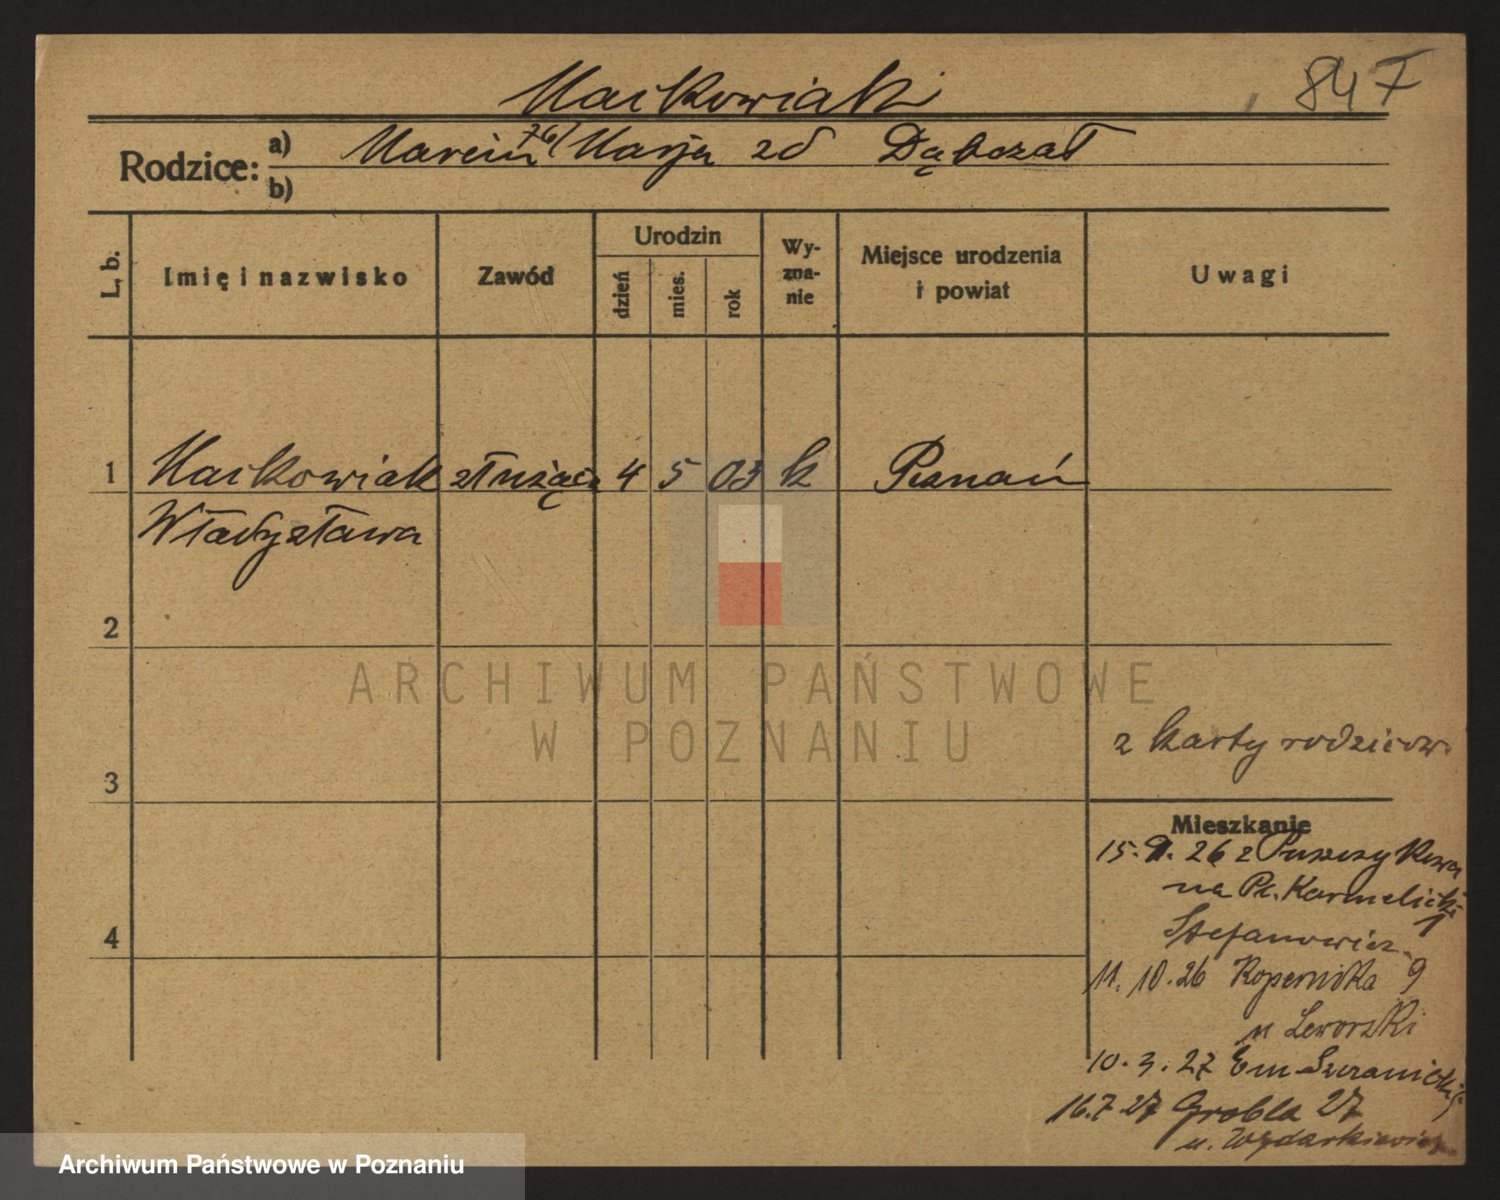 Maćkowiak
847
Rodzice: a) Marcin 76/ Marja zd Dąbczał
b)
L. b. Imię i nazwisko Zawód Urodzin dzień mies. rok Wy-zna-nie Miejsce urodzenia i powiat Uwagi
1 Maćkowiak służąca 4 5 03 k Poznań
Władysława
2
z karty rodziców
3
Mieszkanie
15. 9. 26 z Puszczykowa
na Pl. Karmelicki 1
Stefanowicz
4
11. 10. 26 Kopernika 9
u Leworski
10. 3. 27 Em
16.7.27 Grobla 27
u.
ARCHIWUM PAŃSTWOWE
W POZNANIU
Archiwum Państwowe w Poznaniu